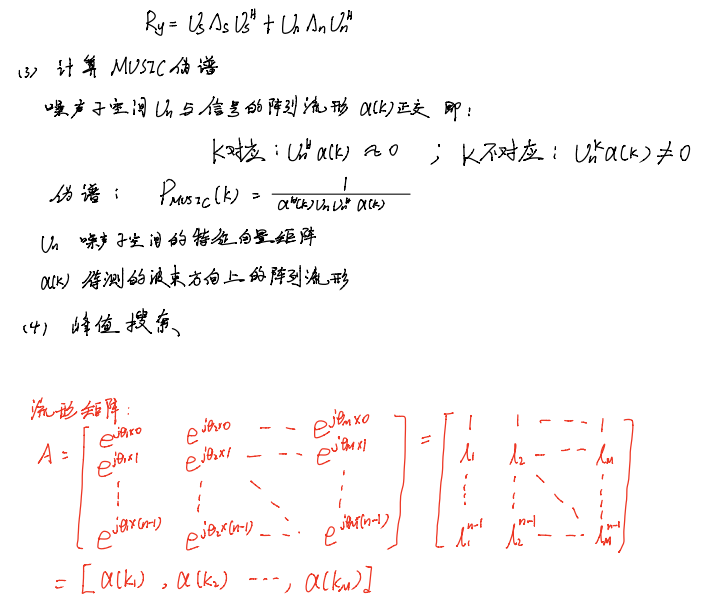 Ry = Us Λs Us^H + Un Λn Un^H
(3) 计算 MUSIC 伪谱
噪声子空间 Un 与信号的阵列流形 α(k)正交 即:
K对应: Un^H α(k) ≈ 0 ; K不对应: Un^H α(k) ≠ 0
伪谱: P_MUSIC(k) = 1 / (α^H(k) Un Un^H α(k))
Un 噪声子空间的特征向量矩阵
α(k) 待测的波束方向上的阵列流形
(4) 峰值搜索、
流形矩阵:
A = [ e^{jθ1×0} e^{jθ2×0} --- e^{jθM×0} ] = [ 1 1 --- 1 ]
[ e^{jθ1×1} e^{jθ2×1} --- e^{jθM×1} ] [ λ1 λ2 --- λM ]
[ e^{jθ1×(n-1)} e^{jθ2×(n-1)} --- e^{jθM(n-1)} ] [ λ1^{n-1} λ2^{n-1} --- λM^{n-1} ]
= [α(k1), α(k2) ---, α(kM)]